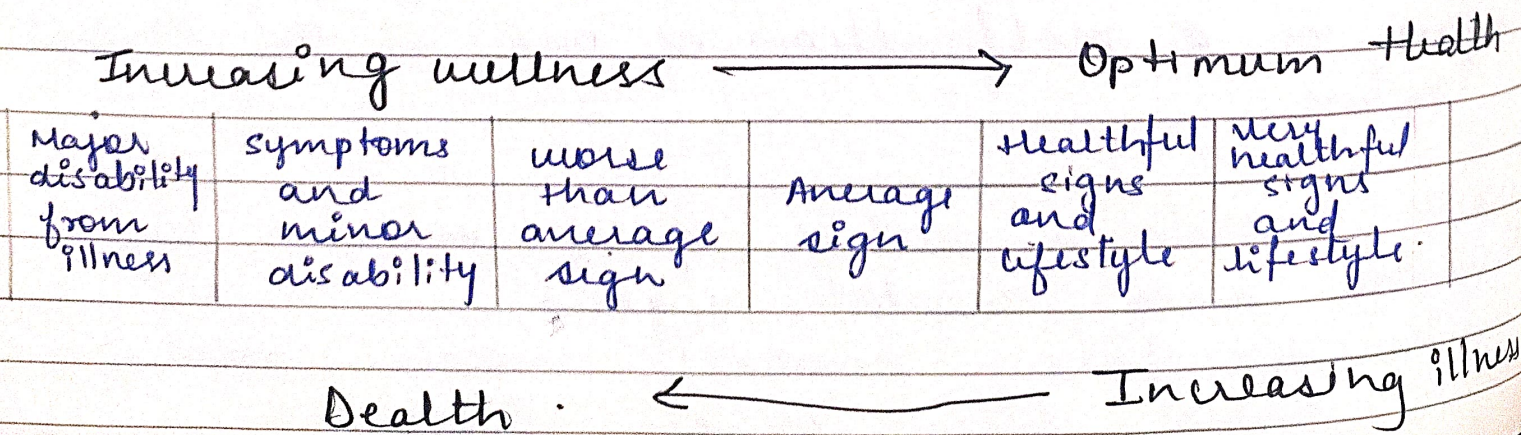 Increasing wellness → Optimum Health
Major
disability
from
illness
symptoms
and
minor
disability
worse
than
average
sign
Average
sign
Healthful
signs
and
lifestyle
very
healthful
signs
and
lifestyle.
Dealth . ← Increasing illness